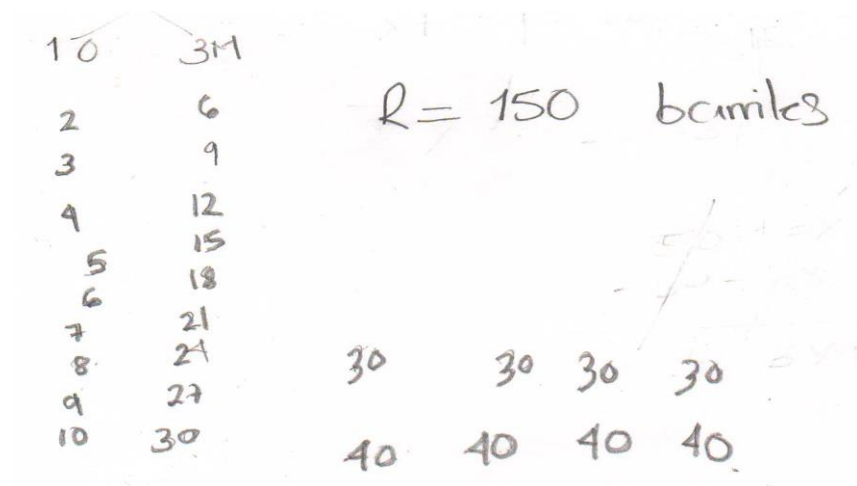 10 3M
2 6
3 9
4 12
5 15
6 18
7 21
8 24
9 27
10 30
R = 150 barriles
30 30 30 30
40 40 40 40